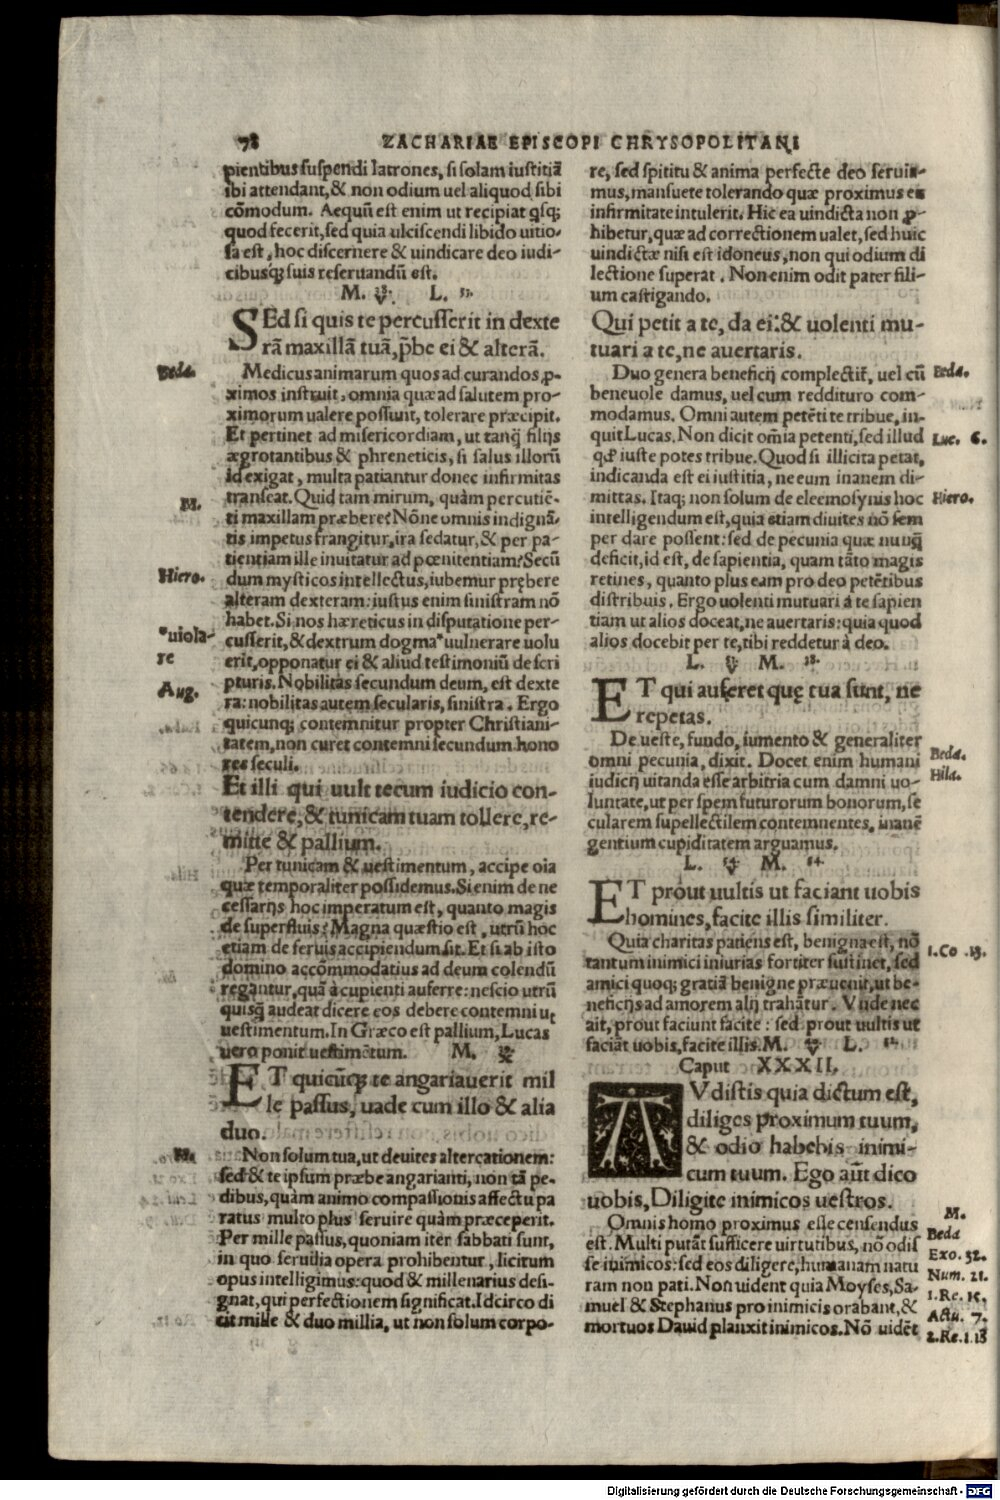 78 ZACHARIAE EPISCOPI CHRYSOPOLITANI
pientibus suspendi latrones, si solam iustitiã
ibi attendant, & non odium uel aliquod sibi
cõmodum. Aequũ est enim ut recipiat qsq;
quod fecerit, sed quia ulciscendi libido uitio-
sa est, hoc discernere & uindicare deo iudi-
cibusq; suis reseruandũ est.
M. L.
SEd si quis te percusserit in dexte
rã maxillã tuã, p̃be ei & alterã.
Beda.
Medicus animarum quos ad curandos, p-
ximos instruit, omnia quæ ad salutem pro-
ximorum ualere possunt, tolerare præcipit.
Et pertinet ad misericordiam, ut tanq̃ filijs
ægrotantibus & phreneticis, si salus illorũ
id exigat, multa patiantur donec infirmitas
M.
transeat. Quid tam mirum, quàm percutiẽ-
ti maxillam præbere? Nõne omnis indignã-
tis impetus frangitur, ira sedatur, & per pa-
tientiam ille inuitatur ad pœnitentiam? Secũ
Hiero.
dum mysticos intellectus, iubemur prębere
alteram dexteram: iustus enim sinistram nõ
habet. Si nos hæreticus in disputatione per-
*uiola-
re
cusserit, & dextrum dogma* uulnerare uolu
erit, opponatur ei & aliud testimoniũ de scri
Aug.
pturis. Nobilitas secundum deum, est dexte
ra: nobilitas autem secularis, sinistra. Ergo
quicunq; contemnitur propter Christiani-
tatem, non curet contemni secundum hono
res seculi.
Et illi qui uult tecum iudicio con-
tendere, & tunicam tuam tollere, re-
mitte & pallium.
Per tunicam & uestimentum, accipe oia
quæ temporaliter possidemus. Si enim de ne
cessarijs hoc imperatum est, quanto magis
de superfluis? Magna quæstio est, utrũ hoc
etiam de seruis accipiendum sit. Et si ab isto
domino accõmodatius ad deum colendũ
regantur, quã à cupienti auferre: nescio utrũ
quisq̃ audeat dicere eos debere contemni ut
uestimentum. In Græco est pallium, Lucas
uero ponit uestimẽtum. M.
ET quicũq; te angariauerit mil
le passus, uade cum illo & alia
duo.
M.
Non solum tua, ut deuites altercationem:
sed & te ipsum præbe angarianti, non tã pe-
dibus, quàm animo compassionis affectu pa
ratus multo plus seruire quàm præceperit.
Per mille passus, quoniam iter sabbati sunt,
in quo seruilia opera prohibentur, licitum
opus intelligimus: quod & millenarius desi-
gnat, qui perfectionem significat. Idcirco di
cit mille & duo millia, ut non solum corpo-
re, sed spititu & anima perfecte deo serui-
mus, mansuete tolerando quæ proximus ex
infirmitate intulerit. Hic ea uindicta non p-
hibetur, quæ ad correctionem ualet, sed huic
uindictæ nisi est idoneus, non qui odium di
lectione superat. Non enim odit pater fili-
um castigando.
Qui petit a te, da ei: & uolenti mu-
tuari a te, ne auertaris.
Duo genera beneficij complectit̃, uel cũ Beda.
beneuole damus, uel cum reddituro com-
modamus. Omni autem petẽti te tribue, in-
quit Lucas. Non dicit om̃ia petenti, sed illud Luc. 6.
qđ iuste potes tribue. Quod si illicita petat,
indicanda est ei iustitia, ne eum inanem di-
mittas. Itaq; non solum de eleemosynis hoc Hiero.
intelligendum est, quia etiam diuites nõ sem
per dare possent: sed de pecunia quæ nunq̃
deficit, id est, de sapientia, quam tãto magis
retines, quanto plus eam pro deo petẽtibus
distribuis. Ergo uolenti mutuari à te sapien
tiam ut alios doceat, ne auertaris: quia quod
alios docebit per te, tibi reddetur à deo.
L. M.
ET qui auferet quę tua sunt, ne
repetas.
De ueste, fundo, iumento & generaliter
omni pecunia, dixit. Docet enim humani Beda.
iudicij uitanda esse arbitria cum damni uo- Hila.
luntate, ut per spem futurorum bonorum, se
cularem supellectilem contemnentes, inanẽ
gentium cupiditatem arguamus.
L. M.
ET prout uultis ut faciant uobis
homines, facite illis similiter.
Quia charitas patiens est, benigna est, nõ 1.Co .13.
tantum inimici iniurias fortiter sustinet, sed
amici quoq; gratiã benigne præuenit, ut be-
neficijs ad amorem alij trahãtur. Vnde nec
ait, prout faciunt facite: sed prout uultis ut
faciãt uobis, facite illis. M. L.
Caput XXXII.
AVdistis quia dictum est,
diliges proximum tuum,
& odio habebis inimi-
cum tuum. Ego aũt dico
uobis, Diligite inimicos uestros.
Omnis homo proximus esse censendus M.
est. Multi putãt sufficere uirtutibus, nõ odis Beda
se inimicos: sed eos diligere, humanam natu Exo. 32.
ram non pati. Non uident quia Moyses, Sa- Num. 21.
muel & Stephanus pro inimicis orabant, & 1.Re. 15.
Actu. 7.
mortuos Dauid planxit inimicos. Nõ uidẽt 2.Re.1.18
Digitalisierung gefördert durch die Deutsche Forschungsgemeinschaft - DFG